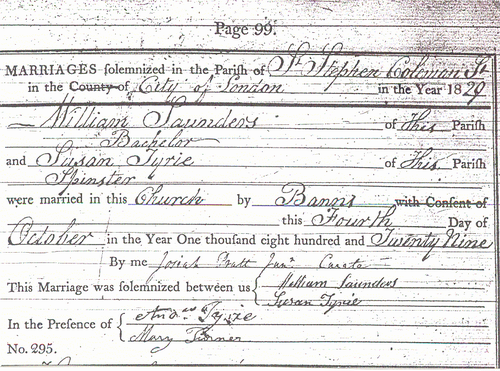 Page 99.
MARRIAGES solemnized in the Parish of St. Stephen Coleman St
in the County of City of London in the Year 1829
William Saunders of this Parish
Bachelor
and Susan Tyrie of this Parish
Spinster
were married in this Church by Banns with Consent of
this Fourth Day of
October in the Year One thousand eight hundred and Twenty Nine
By me Josiah Pratt Junr. Curate
This Marriage was solemnized between us { William Saunders
Susan Tyrie
In the Presence of { Andw Tyrie
Mary Turner
No. 295.